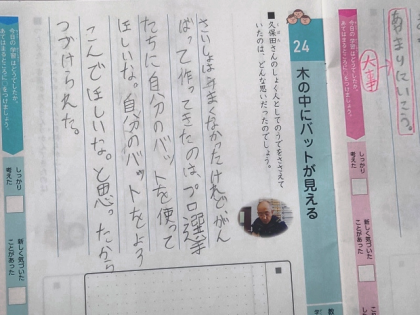 あまりにいこう。
大事
今日の学習はどうでしたか。
あてはまるところに、○をつけましょう。
しっかり
考えた
新しく気づいた
ことがあった
24
木の中にバットが見える
■久保田さんのしょく人としてのうでをささえて
いたのは、どんな思いだったのでしょう。
さいしょはうまくなかったけれど、がん
ばって作ってきたのは、プロ選手
たちに自分のバットを使って
ほしいな。自分のバットをよろ
こんでほしいな。と思った。だから
つづけられた。
今日の学習はどうでしたか。
あてはまるところに、○をつけましょう。
しっかり
考えた
新しく気づいた
ことがあった